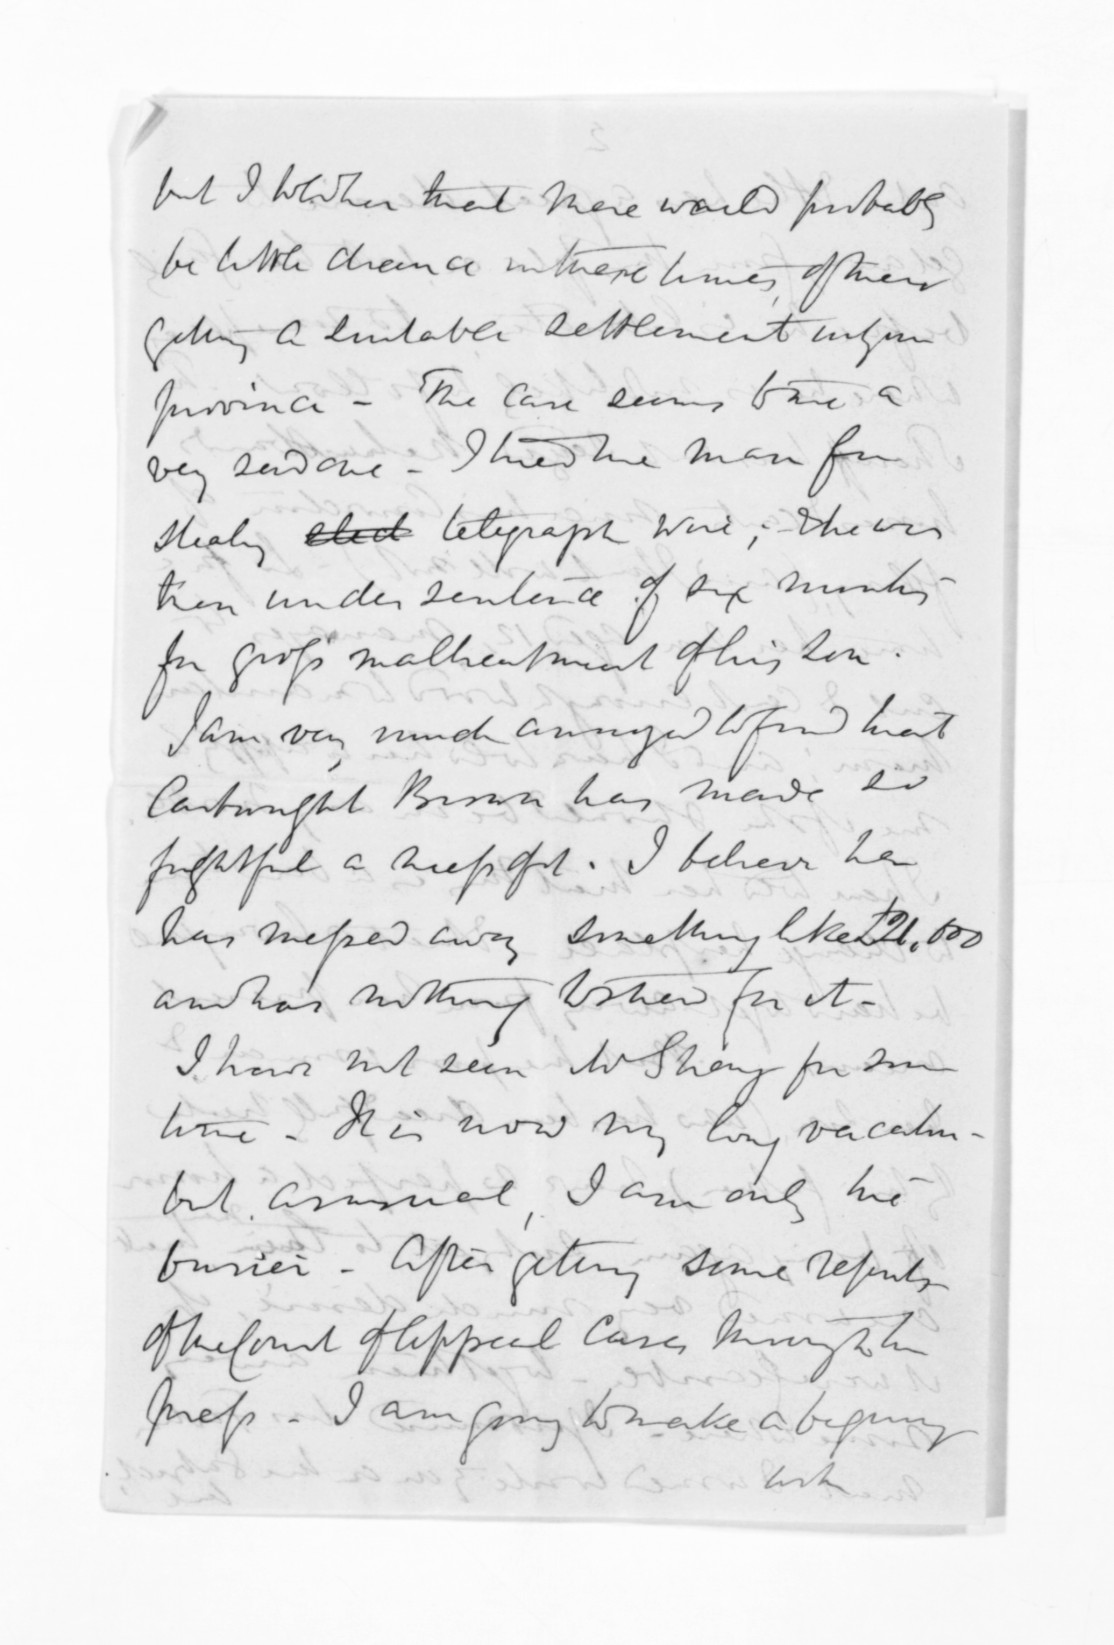 2
but I told her that there would probably
be little chance in these times, of their
getting a suitable settlement in your
province - The case seems to me a
very sad one - I tried the man for
stealing sted telegraph wire; - & he was
then under sentence of six months
for gross maltreatment of his son.
I am very much annoyed to find that
Cartwright Brown has made so
frightful a mess of it. I believe he
has messed away something like £21,000
and has nothing to shew for it -
I have not seen for some
time - It is now my long vacation -
but as usual, I am only the
busier - After getting some reports
of the Court of Appeal Cases through the
press - I am going to make a beginning
with